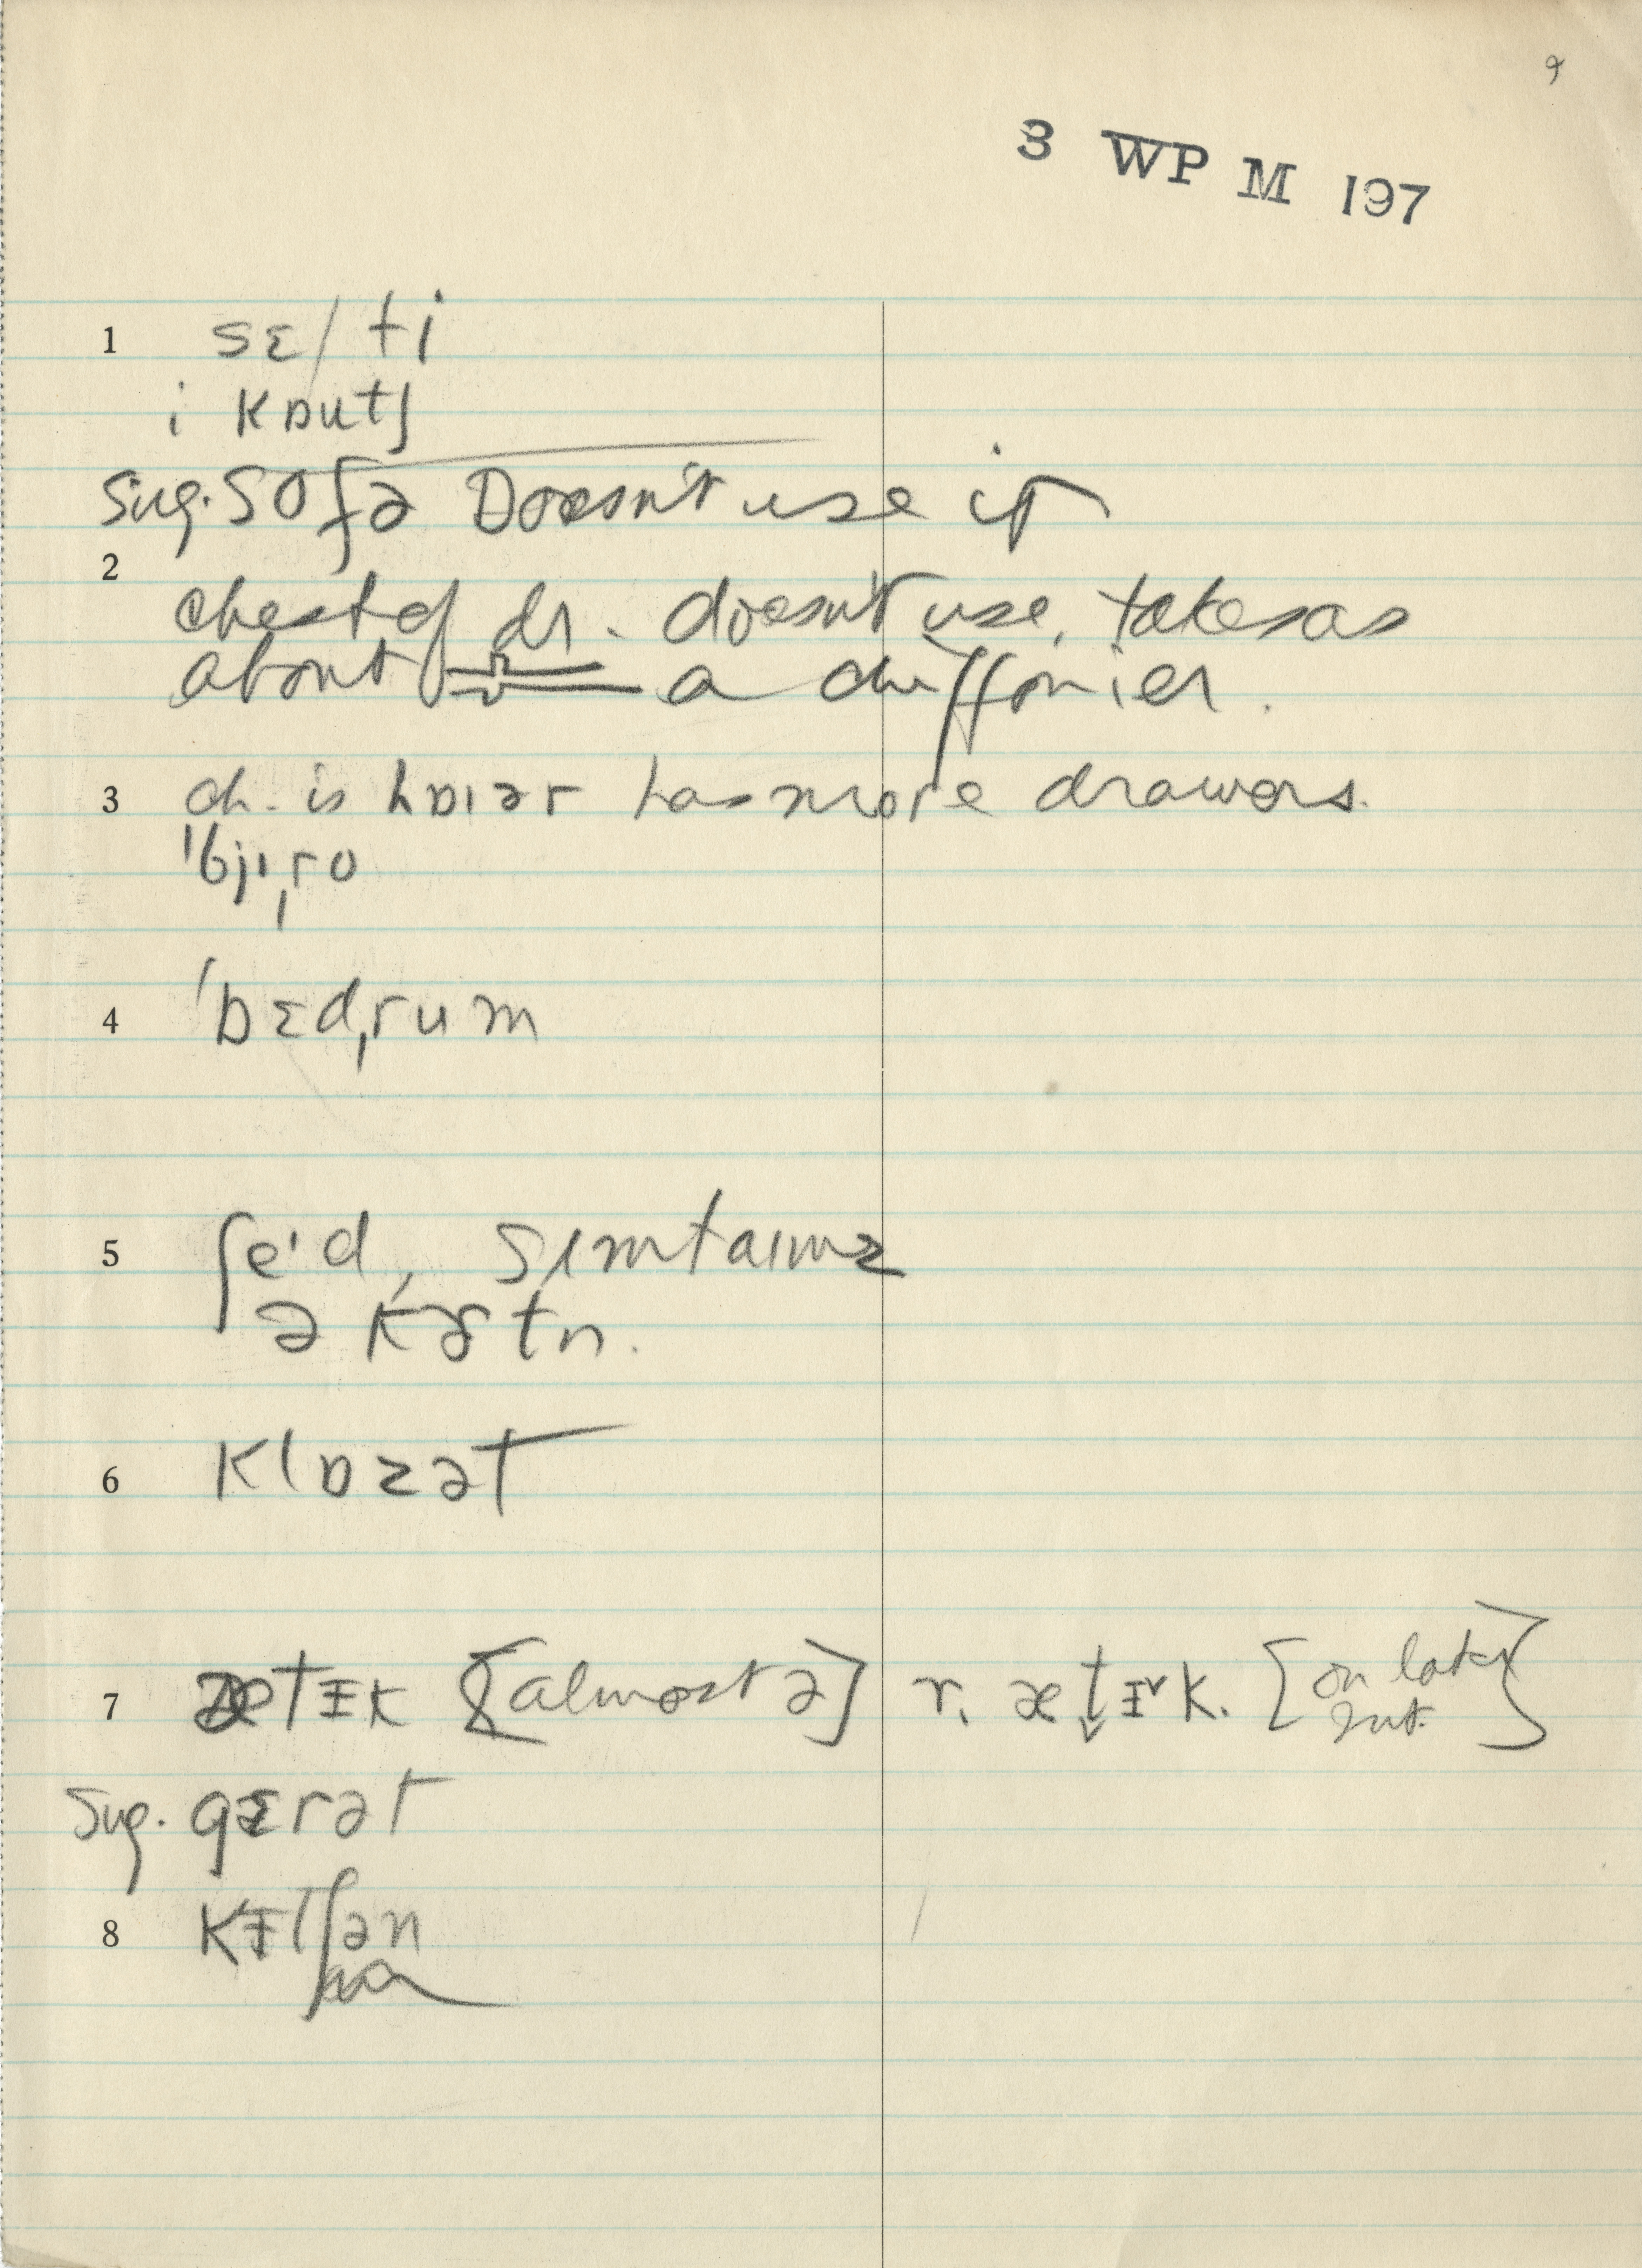 9
3 WP M 197
1 sɛ/ti
i kɒutʃ
Sug. sofə Doesn't use it
2
chest of dr. doesn't use, takes as
about a chiffonier.
3 ch. is hɒɪər has more drawers.
ˈbjɪˌro
4 ˈbɛdˌrum
5 ʃe'd, sɪmtaɪmz
ə kɚtn.
6 klɒzət
7 ætɪk [almost ə] r. ætɪk. [on later
int.]
Sug. gɛrət
8 kɪtʃən